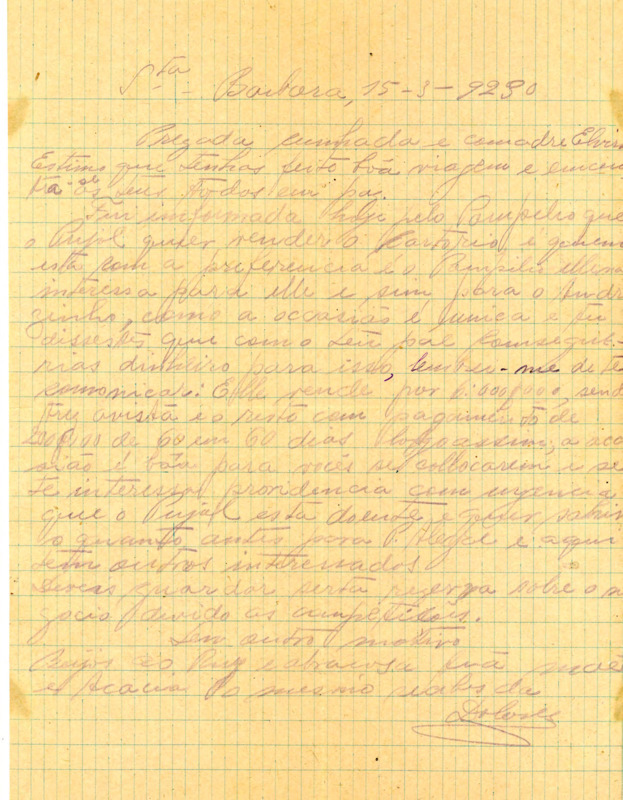 Sta Barbara, 15-3-9230
Prezada cunhada e comadre Elvira
Estimo que tenhas feito bôa viagem e encon
tra os teus todos em paz.
Fui informada hoje pelo Pompilio que
o Pujol quer vender o Cartorio e quem
está com a preferencia é o Pompilio
interessa para elle e sim para o André
zinho, como a occasião é unica e tu
dissestes que com o teu pae consegui-
rias dinheiro para isso, lembrei-me de te
comonicar: Elle vende por 6:000$000, send
tres avista e o resto com pagamento de
de 60 em 60 dias assim, a oca
sião é bôa para vocês se collocarem e se
te interessa providencia com urgencia
que o Pujol está doente e quer sahir
o quanto antes para P. Alegre e aqui
tem outros interessados
Deves guardar serta reserva sobre o n
gocio devido as competisões.
Sem outro motivo
Beijos ao Ruy e abraços a tuá mãe
e Acacia o mesmo recebes da